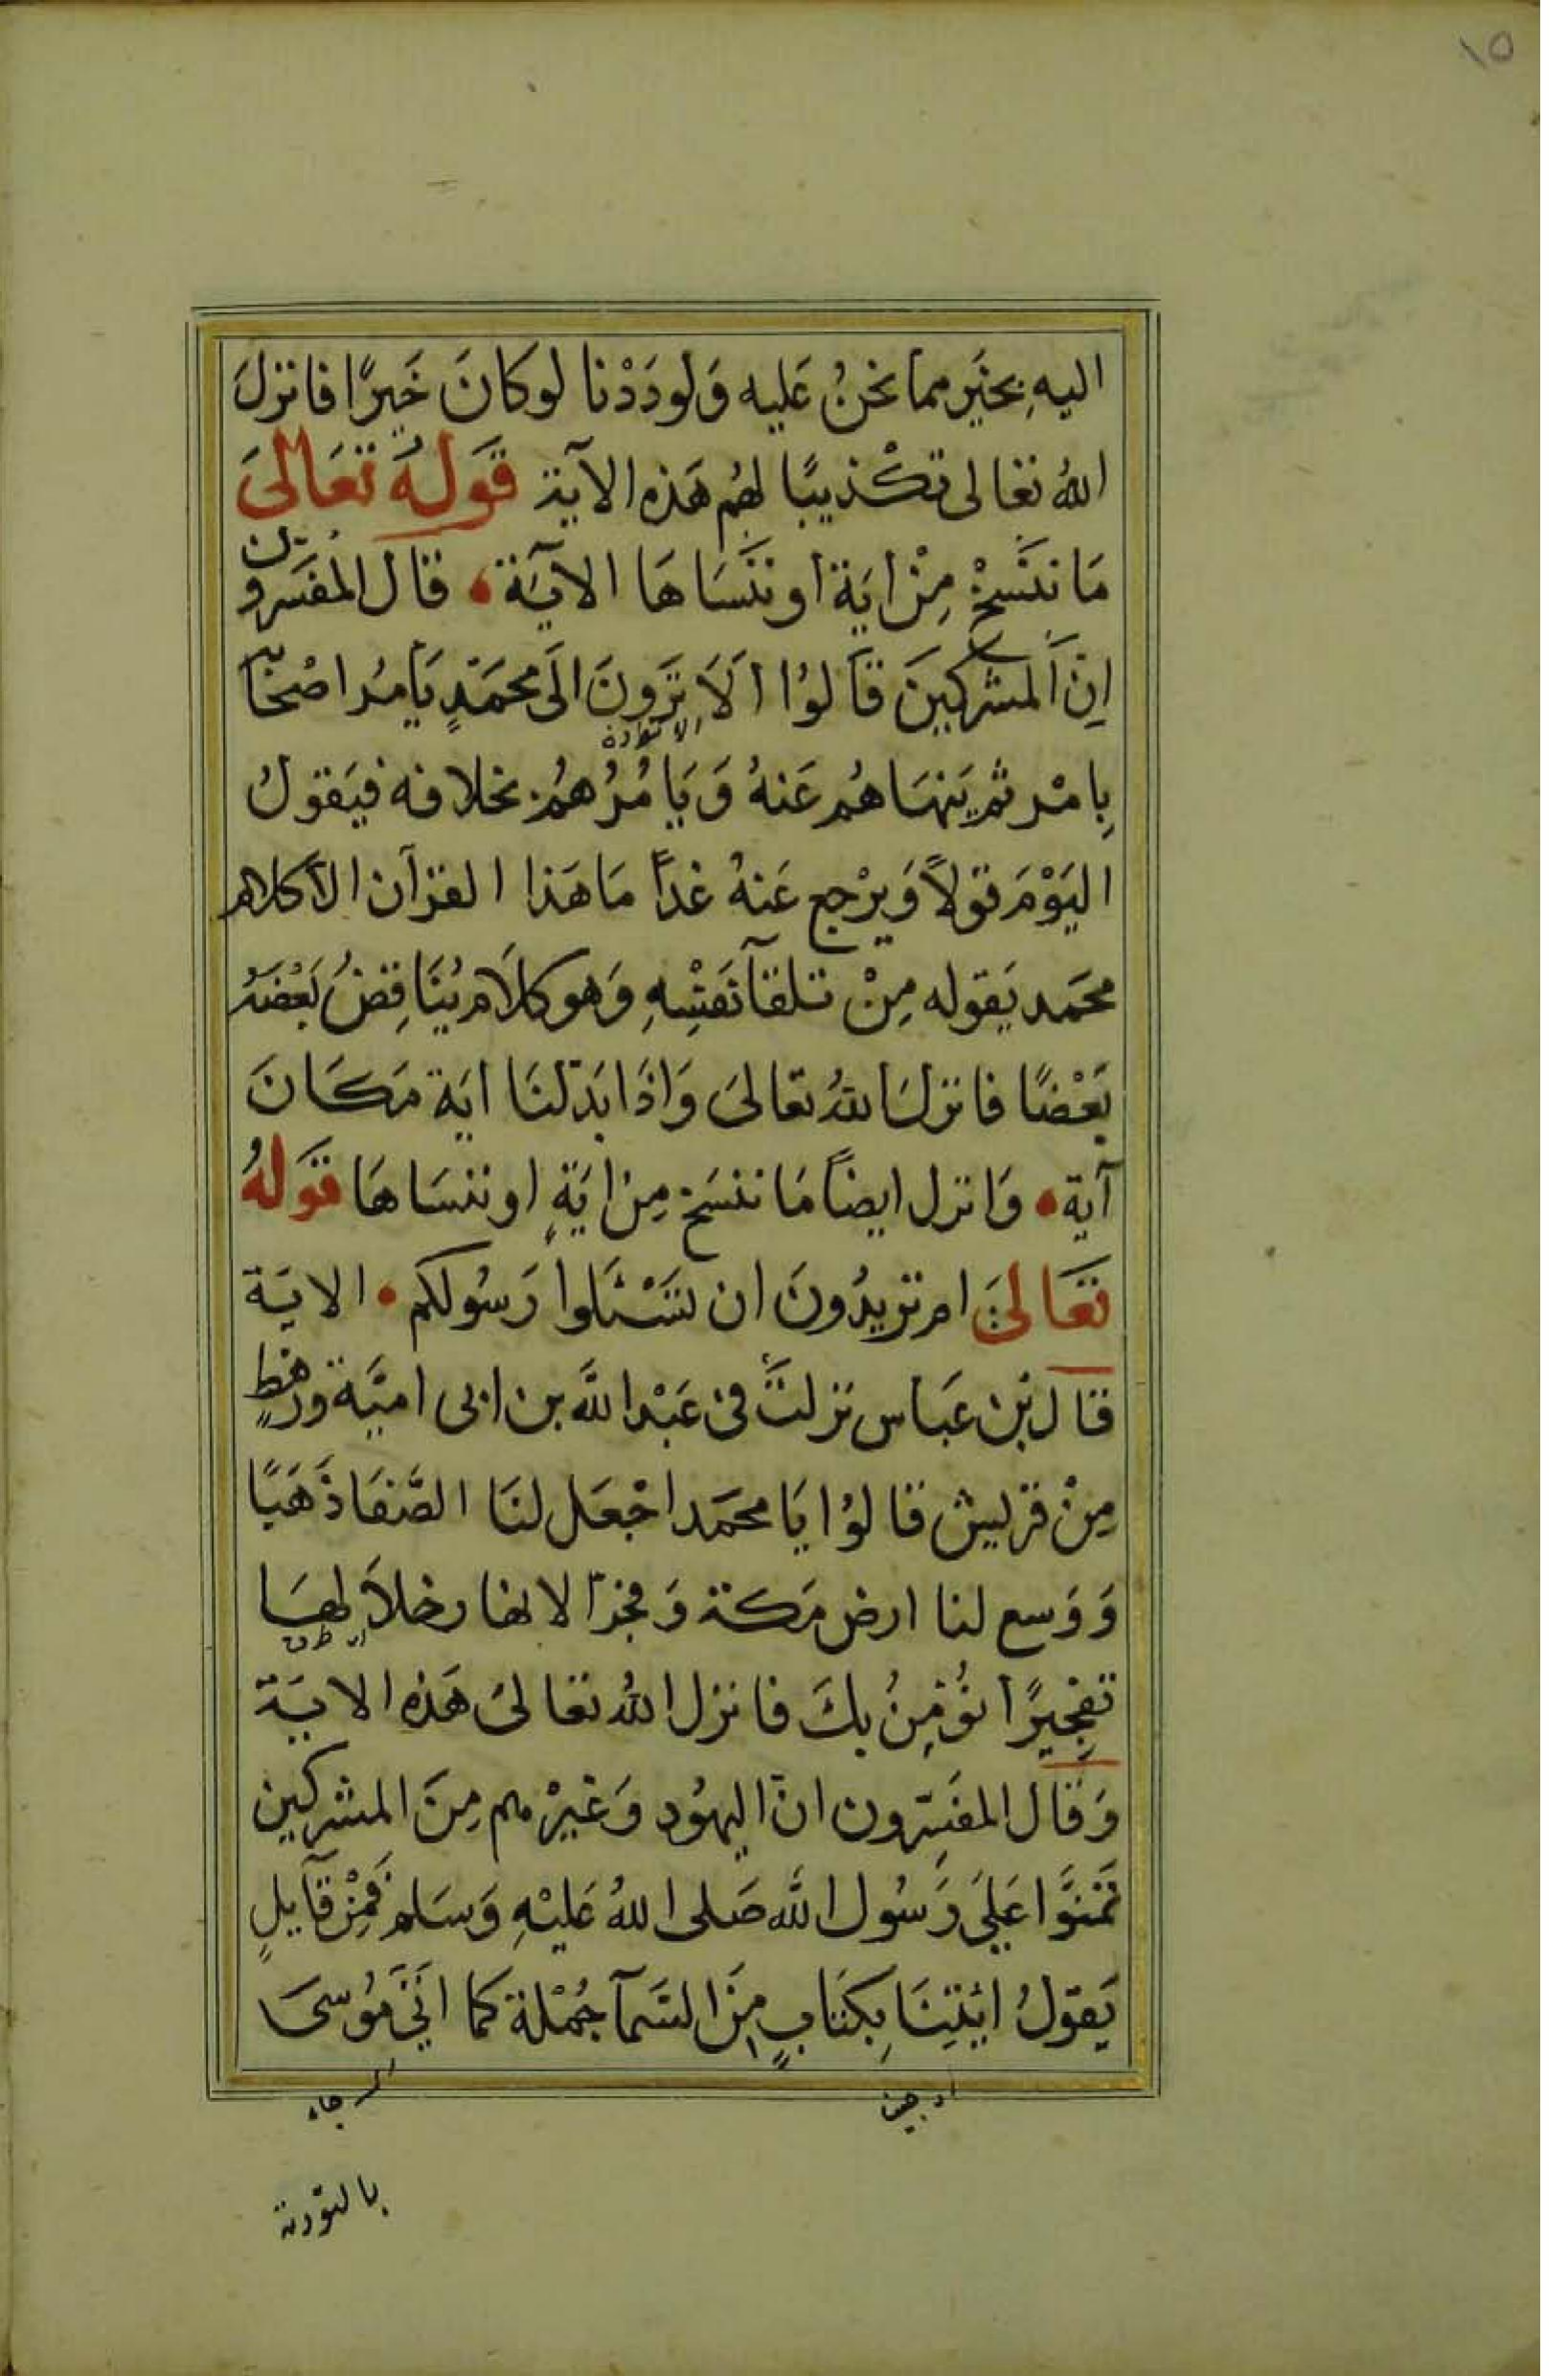 ١٥
اليهِ بخَيرٍ مما نحنُ عَليه وَلودَدْنا لوكانَ خَيرًا فانزلَ
اللهُ تعالى تكْذيبًا لهُم هَذه الآية قَولهُ تعَالىَ
مَا ننسَخْ مِنْ ايَة او ننسَاهَا الآيَة • قال المفسرون
اِنَّ المشركينَ قالوُا اَلاَ تَرونَ الَى محمَدٍ يَأمرُ اصْحابَه
بِامْر ثم يَنهَاهُم عَنهُ وَيَامُرُهُم بخلافه فيَقولُ
اليَوْمَ قولاً وَيرْجع عَنهُ غداً مَا هَذا القرآن الا كلام
محمَد يَقوله مِنْ تلقآ نَفسِهِ وَهو كلاَم يُنَاقِضُ بَعْضَهُ
بَعْضًا فانزلَ اللهُ تعَالىَ وَاذَا بَدّلنَا ايَة مَكَانَ
آية • وَانزل ايضاً مَا ننسَخ مِن ايَةٍ او ننسَاهَا قَولهُ
تعَالىَ ام تريدُونَ ان تسْئَلوا رَسُولكم • الايَة
قال بْن عَباس نزلتْ في عَبْد اللَّه بن ابى اميَّة ورهطٍ
مِنْ قريش قالوُا يَا محمَد اجْعَل لنَا الصَّفَا ذَهَبًا
وَوَسع لنا ارض مَكة وَفجرّ الانهار خلاَلهَا
تفجِيرًا نُؤمِنُ بكَ فانزل اللهُ تعَالىَ هَذهِ الايَة
وَقال المفسّرون انّ اليهُود وَغيرْهم مِنَ المشركين
تمَنوَّا عَلَى رَسُول اللَّه صَلى اللهُ عَليْهِ وَسَلم فَمِنْ قآيلٍ
يَقولُ ايْتِنَا بِكتَابٍ مِنَ السَمآ جُمْلة كما اتَى مُوسىَ
بالتورية